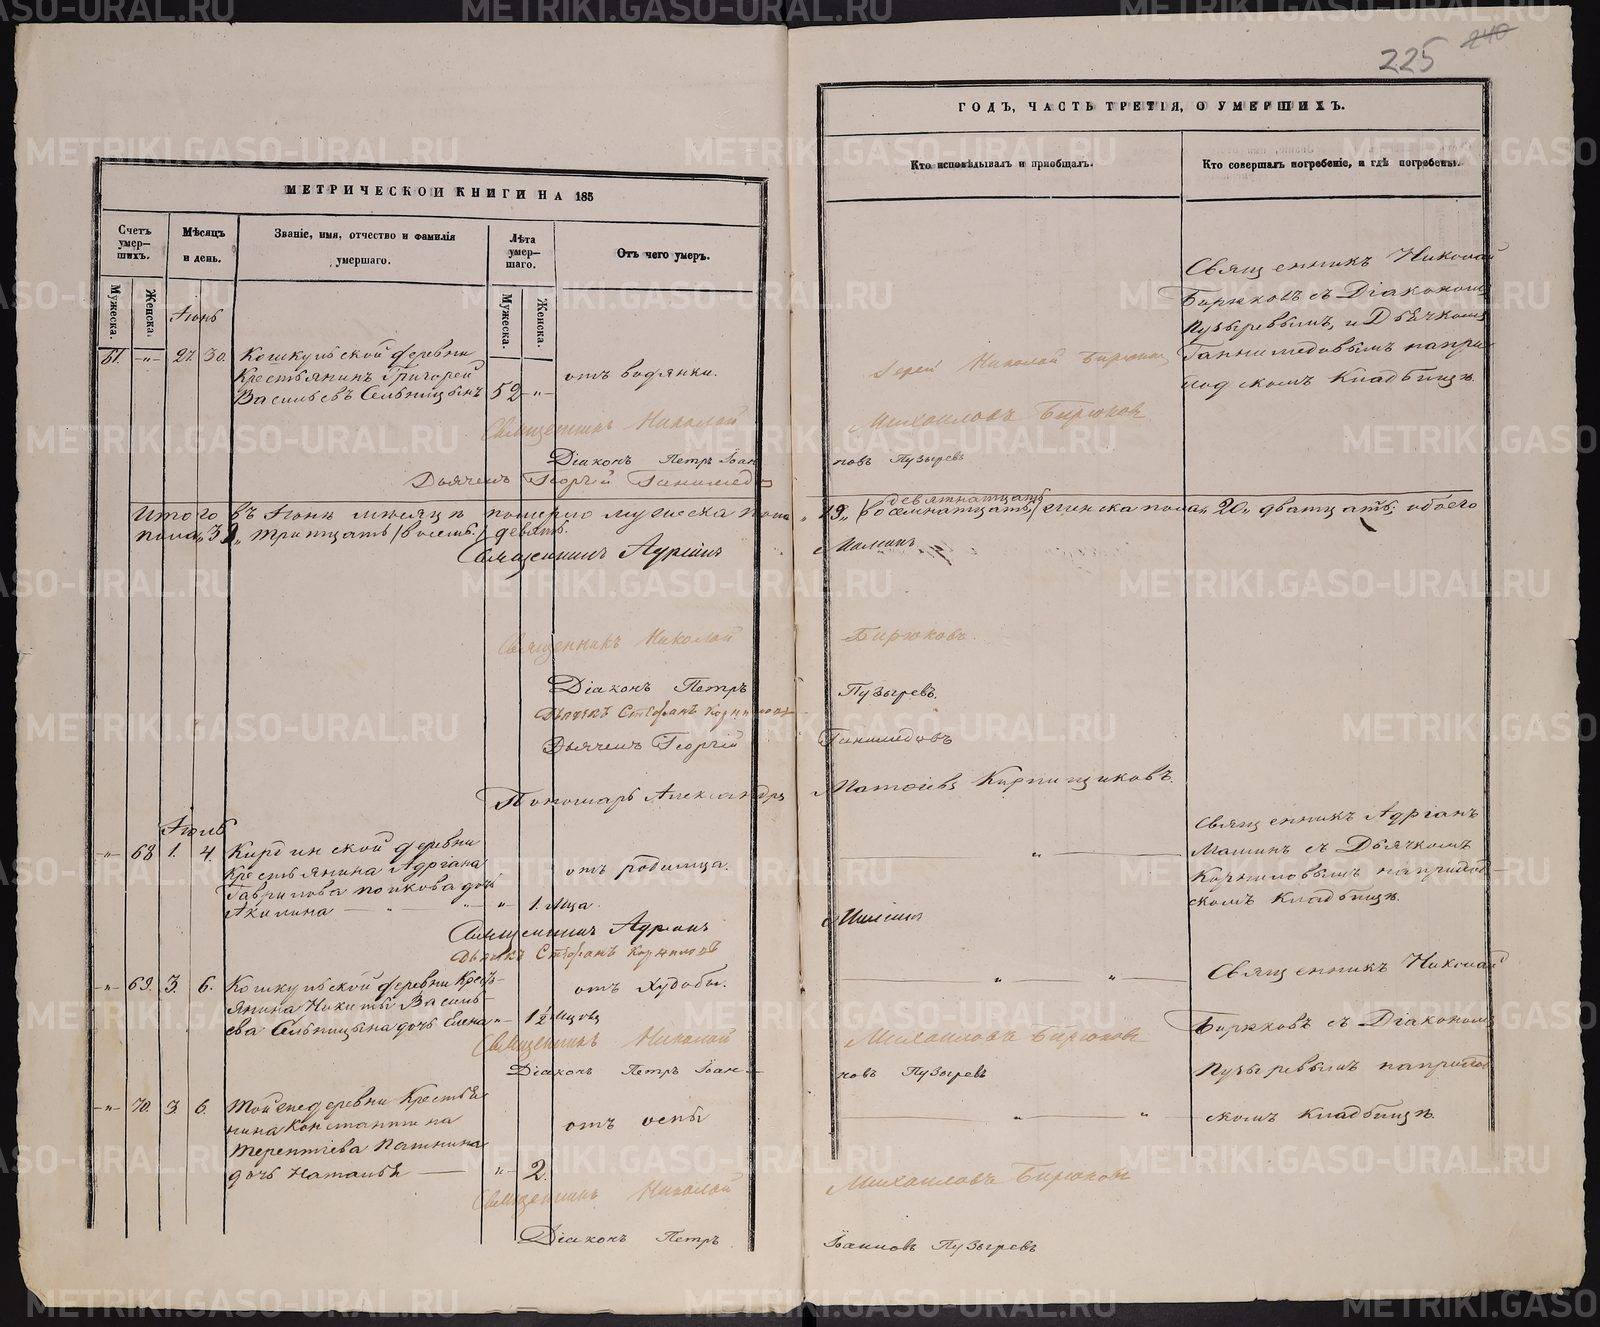 225 240
МЕТРИЧЕСКОЙ КНИГИ НА 185
Счетъ умер-шихъ.
Мужеска.
Женска.
Мѣсяцъ и день.
Званіе, имя, отчество и фамилія умершаго.
Лѣта умер-шаго.
Мужеска.
Женска.
Отъ чего умеръ.
Іюнь
61. -„- 27. 30. Кошкульской деревни
Крестьянинъ Григорей
Васильевъ Сельницынъ 52 -„-
отъ водянки.
Священникъ Николай
Діаконъ Петръ Іоан
Дьячекъ Георгій Ганимедо
Итого въ Іюнѣ месяцѣ померло мужеска пола
пола „39„ тритцать /восемь./ девять.
Священникъ Адріанъ
Священникъ Николай
Діаконъ Петръ
Дьячекъ Стефанъ Корниловъ
Дьячекъ Георгій
Пономарь Александръ
Іюль
-„- 68 1. 4. Кирдинской деревни
крестьянина Адріана
Гаврилова дочь
Акилина — „ — -„- 1. мца.
отъ родимца.
Священникъ Адріанъ
Дьячекъ Стефанъ Корниловъ
-„- 69. 3. 6. Кошкульской деревни Кресть-
янина Никиты Василь-
ева Сельницына дочь Елена -„- 1½ мцовъ
отъ Худобы.
Священникъ Николай
Діаконъ Петръ Іоан-
-„- 70. 3 6. Той же деревни Крестья
нина Константина
Терентіева
дочь Наталья — -„- 2.
отъ оспы
Священникъ Николай
Діаконъ Петръ
ГОДЪ, ЧАСТЬ ТРЕТІЯ, О УМЕРШИХЪ.
Кто исповѣдывалъ и пріобщалъ.
Кто совершалъ погребеніе, и гдѣ погребены.
Священникъ Николай
Бирюковъ съ Діакономъ
Пузыревымъ, и Дьячкомъ
Ганимедовымъ на при
ходскомъ Кладбищѣ.
Іерей Николай Бирюковъ
Михайловъ Бирюковъ
новъ Пузыревъ
девятнатцать
„19„ /восемнатцать,/ женска пола „20„ дватцать; обоего
Мамин
Бирюковъ.
Пузыревъ.
Ганимедовъ
Матвіевъ Кирпищиковъ.
Священникъ Адріанъ
Маминъ съ Дьячкомъ
Корниловымъ на приход-
скомъ Кладбищѣ.
— „ —
Маминъ
Священникъ Николай
Бирюковъ съ Діакономъ
Пузыревымъ на приход
скомъ Кладбищѣ.
— „ — „ —
Михайловъ Бирюковъ
новъ Пузыревъ
— „ — „
Михайловъ Бирюковъ
Іоанновъ Пузыревъ
METRIKI.GASO-URAL.RU